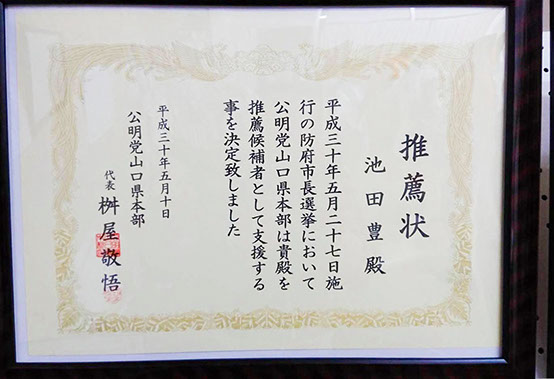 推薦状
池田豊殿
平成三十年五月二十七日施
行の防府市長選挙において
公明党山口県本部は貴殿を
推薦候補者として支援する
事を決定致しました
平成三十年五月十日
公明党山口県本部
代表 桝屋敬悟